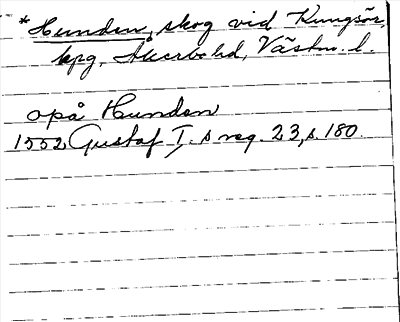 * Hunden, skog vid Kungsör,
kpg, Åkerbo hd, Västm. l.
opå Hunden
1552 Gustaf I.s reg. 23, s. 180.